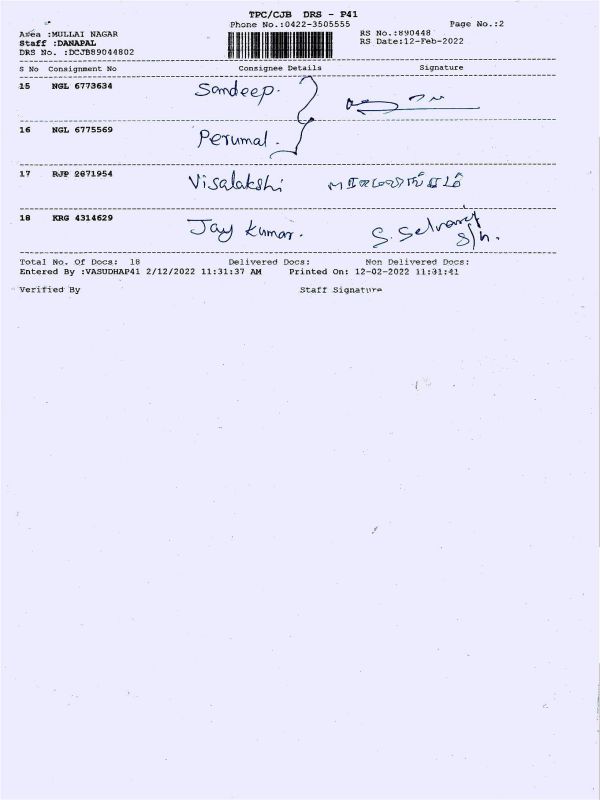 TPC/CJB DRS - P41
Phone No.:0422-3505555 Page No.:2
Area :MULLAI NAGAR RS No.:890448
Staff :DANAPAL RS Date:12-Feb-2022
DRS No. :DCJB89044802
S No Consignment No Consignee Details Signature
15 NGL 6773634 Sandeep.
16 NGL 6775569 Perumal.
17 RJP 2871954 Visalakshi
18 KRG 4314629 Jay Kumar. S. Selvaraj
S/h.
Total No. Of Docs: 18 Delivered Docs: Non Delivered Docs:
Entered By :VASUDHAP41 2/12/2022 11:31:37 AM Printed On: 12-02-2022 11:31:41
Verified By Staff Signature